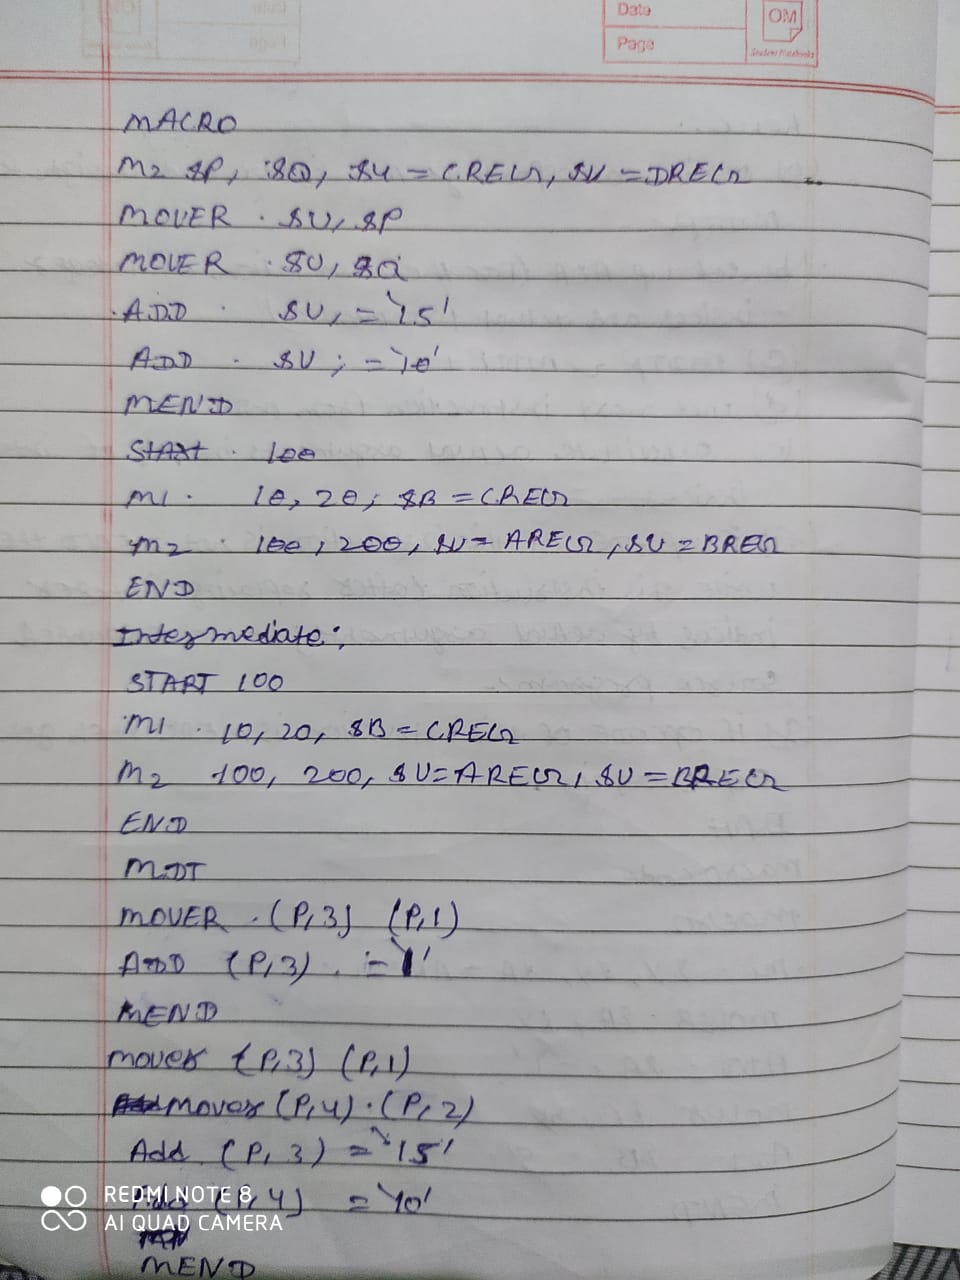 Date
OM
Page
Student Notebooks
MACRO
M2 &P, &Q, &U = CREG, &V = DREG
MOVER &U, &P
MOVER &U, &Q
ADD &U, = '15'
ADD &U, = '10'
MEND
START 100
M1 10, 20, &B = CREG
M2 100, 200, &U = AREG, &V = BREG
END
Intermediate:
START 100
M1 10, 20, &B = CREG
M2 100, 200, &U = AREG, &U = BREG
END
MDT
MOVER (P,3) (P,1)
ADD (P,3) = '1'
MEND
mover (P,3) (P,1)
mover (P,4) (P,2)
Add (P,3) = '15'
Add (P,4) = '10'
MEND
REDMI NOTE 8
AI QUAD CAMERA